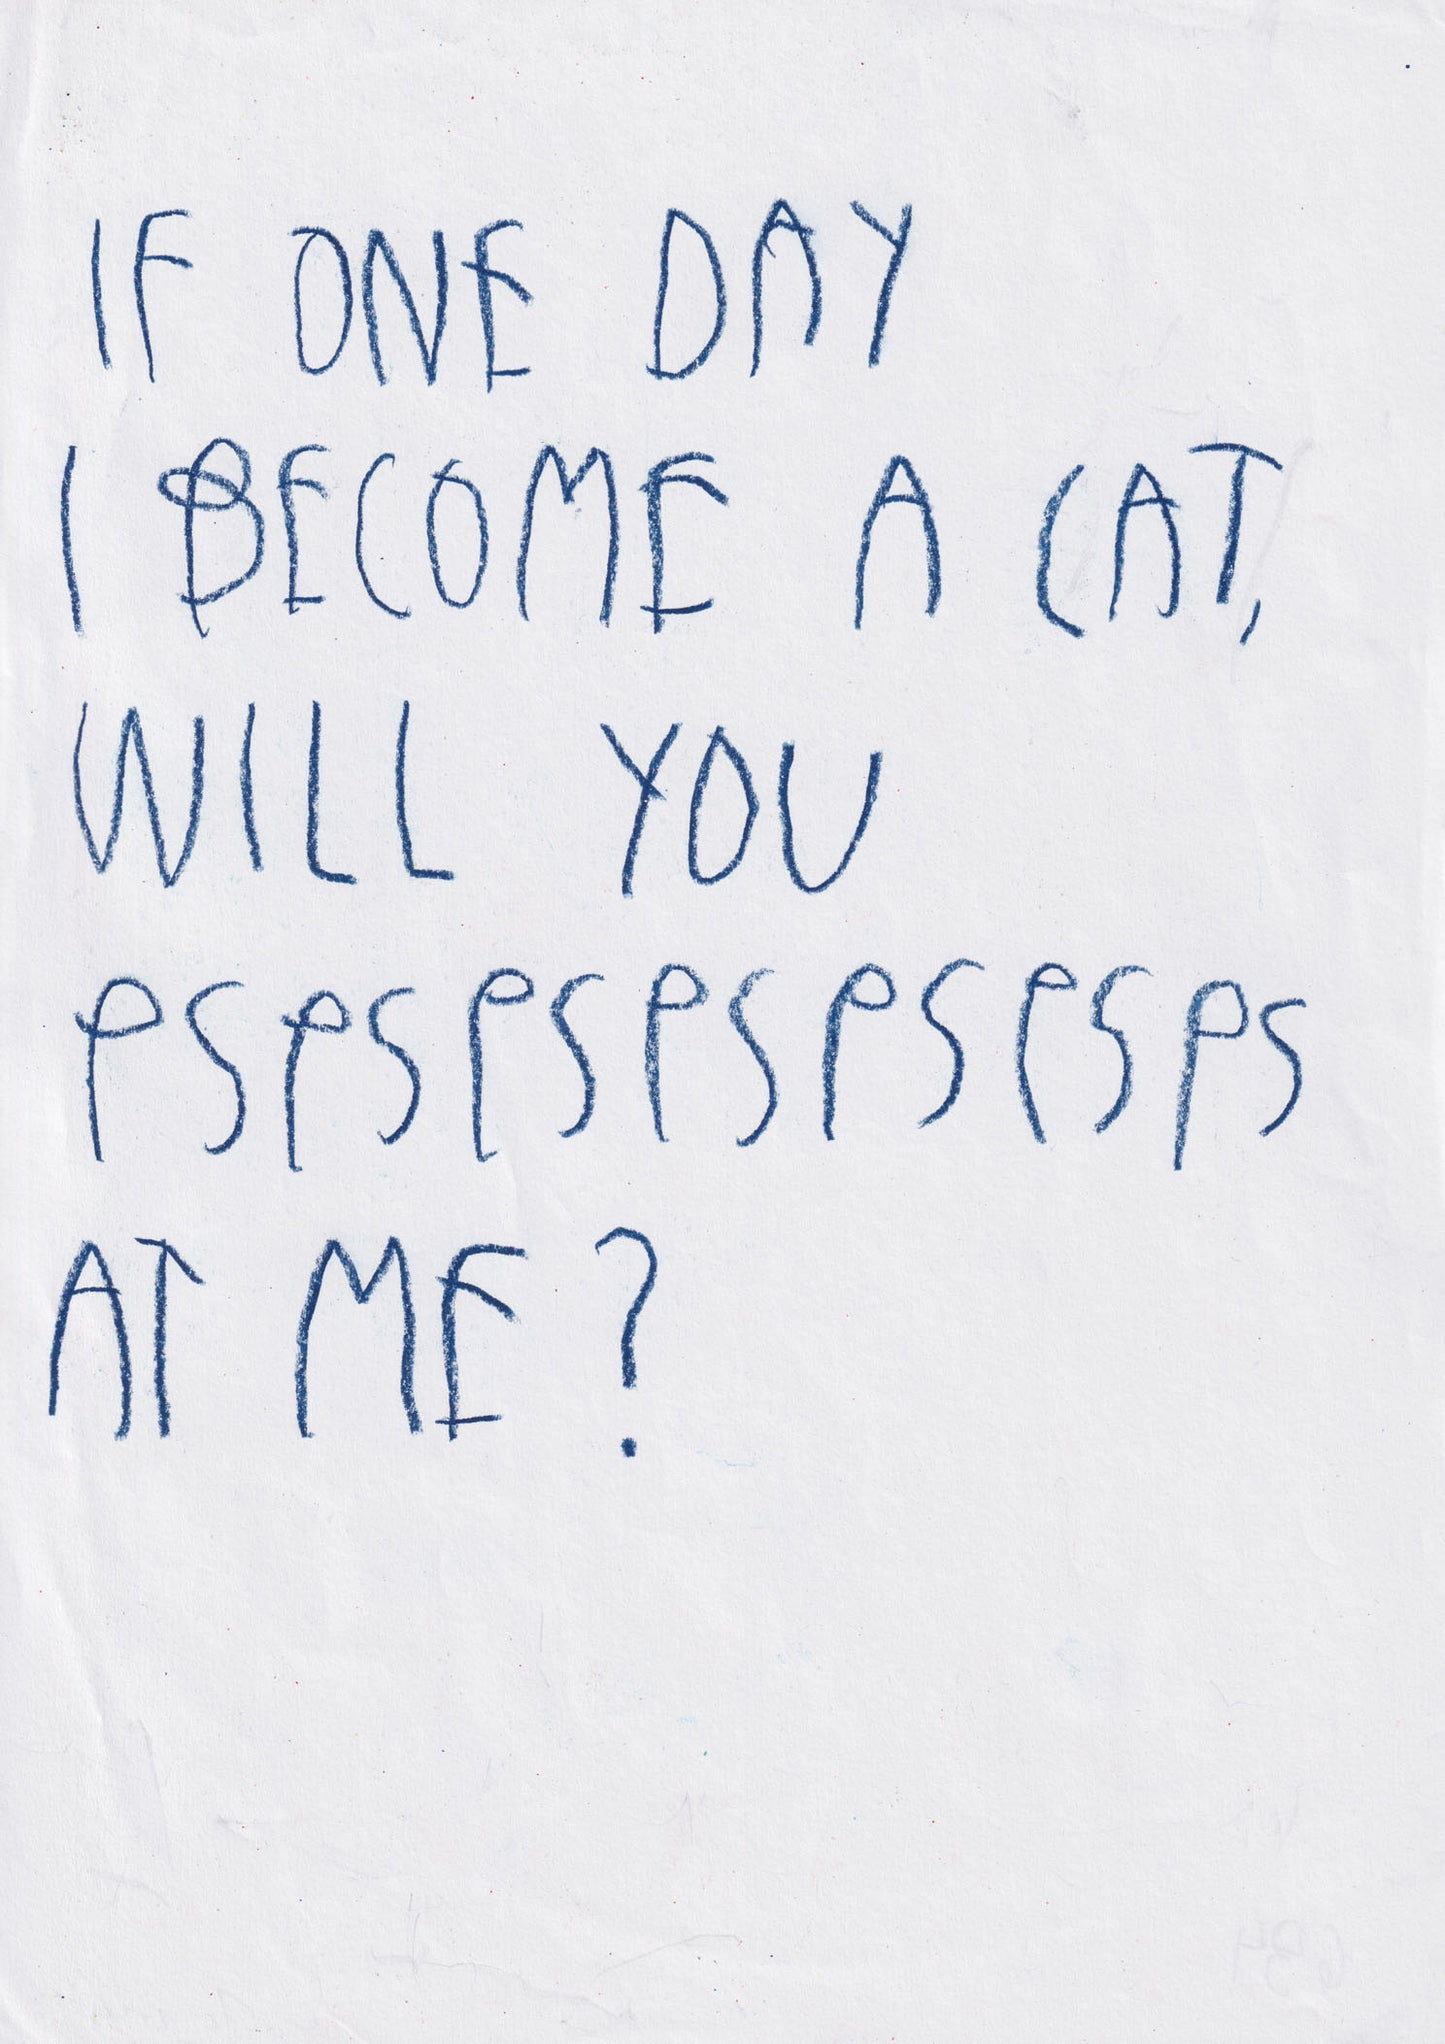 IF ONE DAY
I BECOME A CAT,
WILL YOU
PSPSPSPSPSPSPS
AT ME?